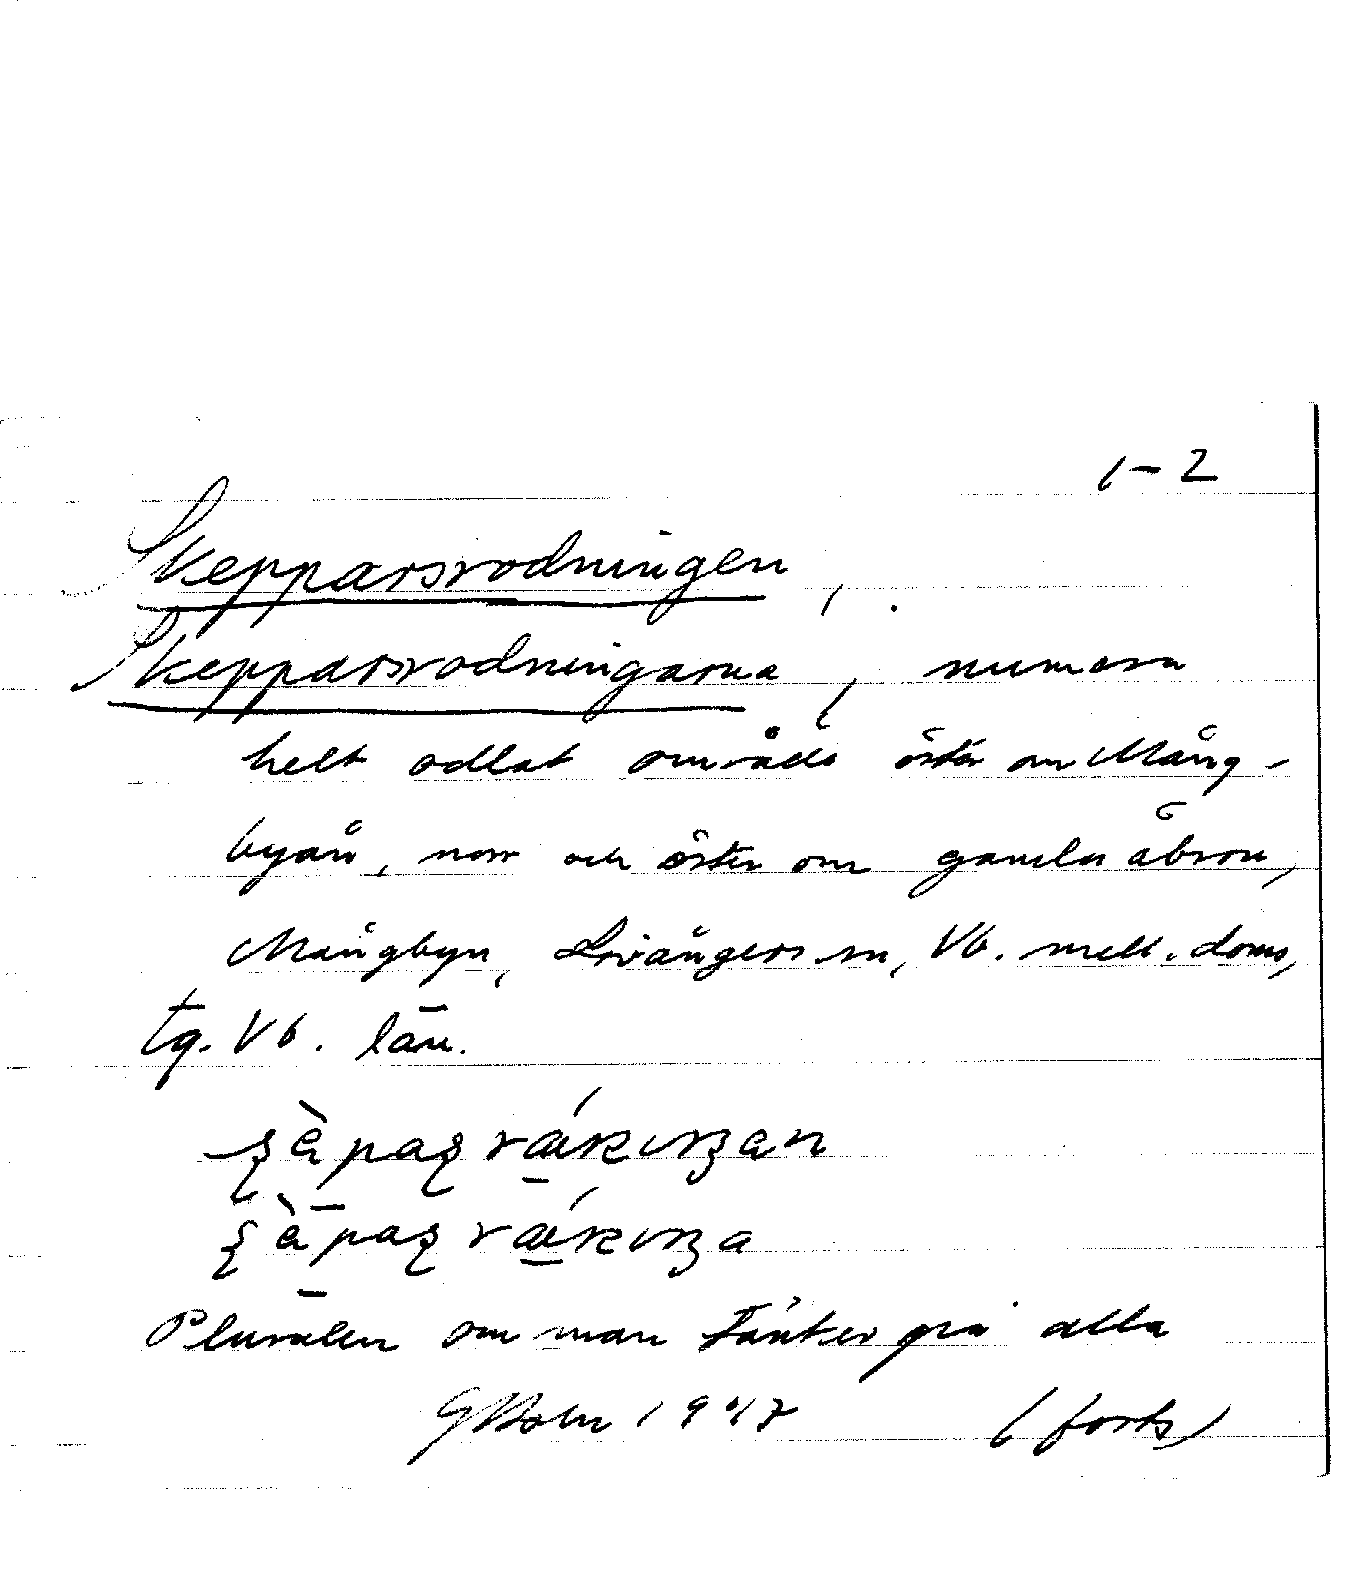 1-2
Skepparsrodningen,
Skepparsrodningarna, numera
helt odlat område öster om Mång-
byån, norr och öster om gamla åbron,
Mångbyn, Lövångers sn, Vb. mell. doms,
tg. Vb. län.
Pluralen om man tänker på alla
1947 (forts)